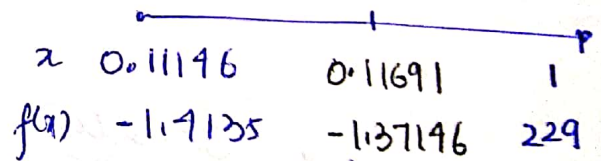 x 0.11146 0.11691 1
f(x) -1.4135 -1.37146 229